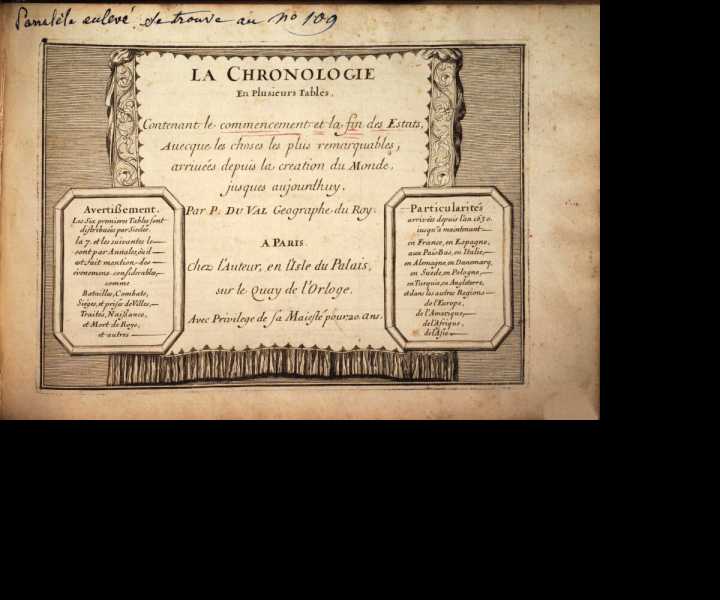 Parallele enlevé se trouve au no 109
LA CHRONOLOGIE
En Plusieurs Tables,
Contenant le commencement et la fin des Estats,
Avecque les choses les plus remarquables,
arrivées depuis la creation du Monde,
jusques aujourdhuy.
Par P. DU VAL Geographe du Roy.
A PARIS
Chez l'Auteur, en l'Isle du Palais,
sur le Quay de l'Orloge.
Avec Privilege de sa Maiesté pour 20. ans.
Avertissement.
Les Six premieres Tables sont
distribuées par Siecles.
la 7. et les suivantes le
sont par Annales, où il
est fait mention des
evenemens considerables,
comme
Batailles, Combats,
Sieges, et prises de Villes,
Traités, Naissance,
et Mort de Roys,
et autres
Particularités
arrivées depuis l'an 1630.
iusqu'a maintenant
en France, en Espagne,
aux Païs Bas, en Italie,
en Alemagne, en Danemarq,
en Suede, en Pologne,
en Turquie, en Angleterre,
et dans les autres Regions
de l'Europe,
de l'Amerique,
de l'Afrique,
de l'Asie